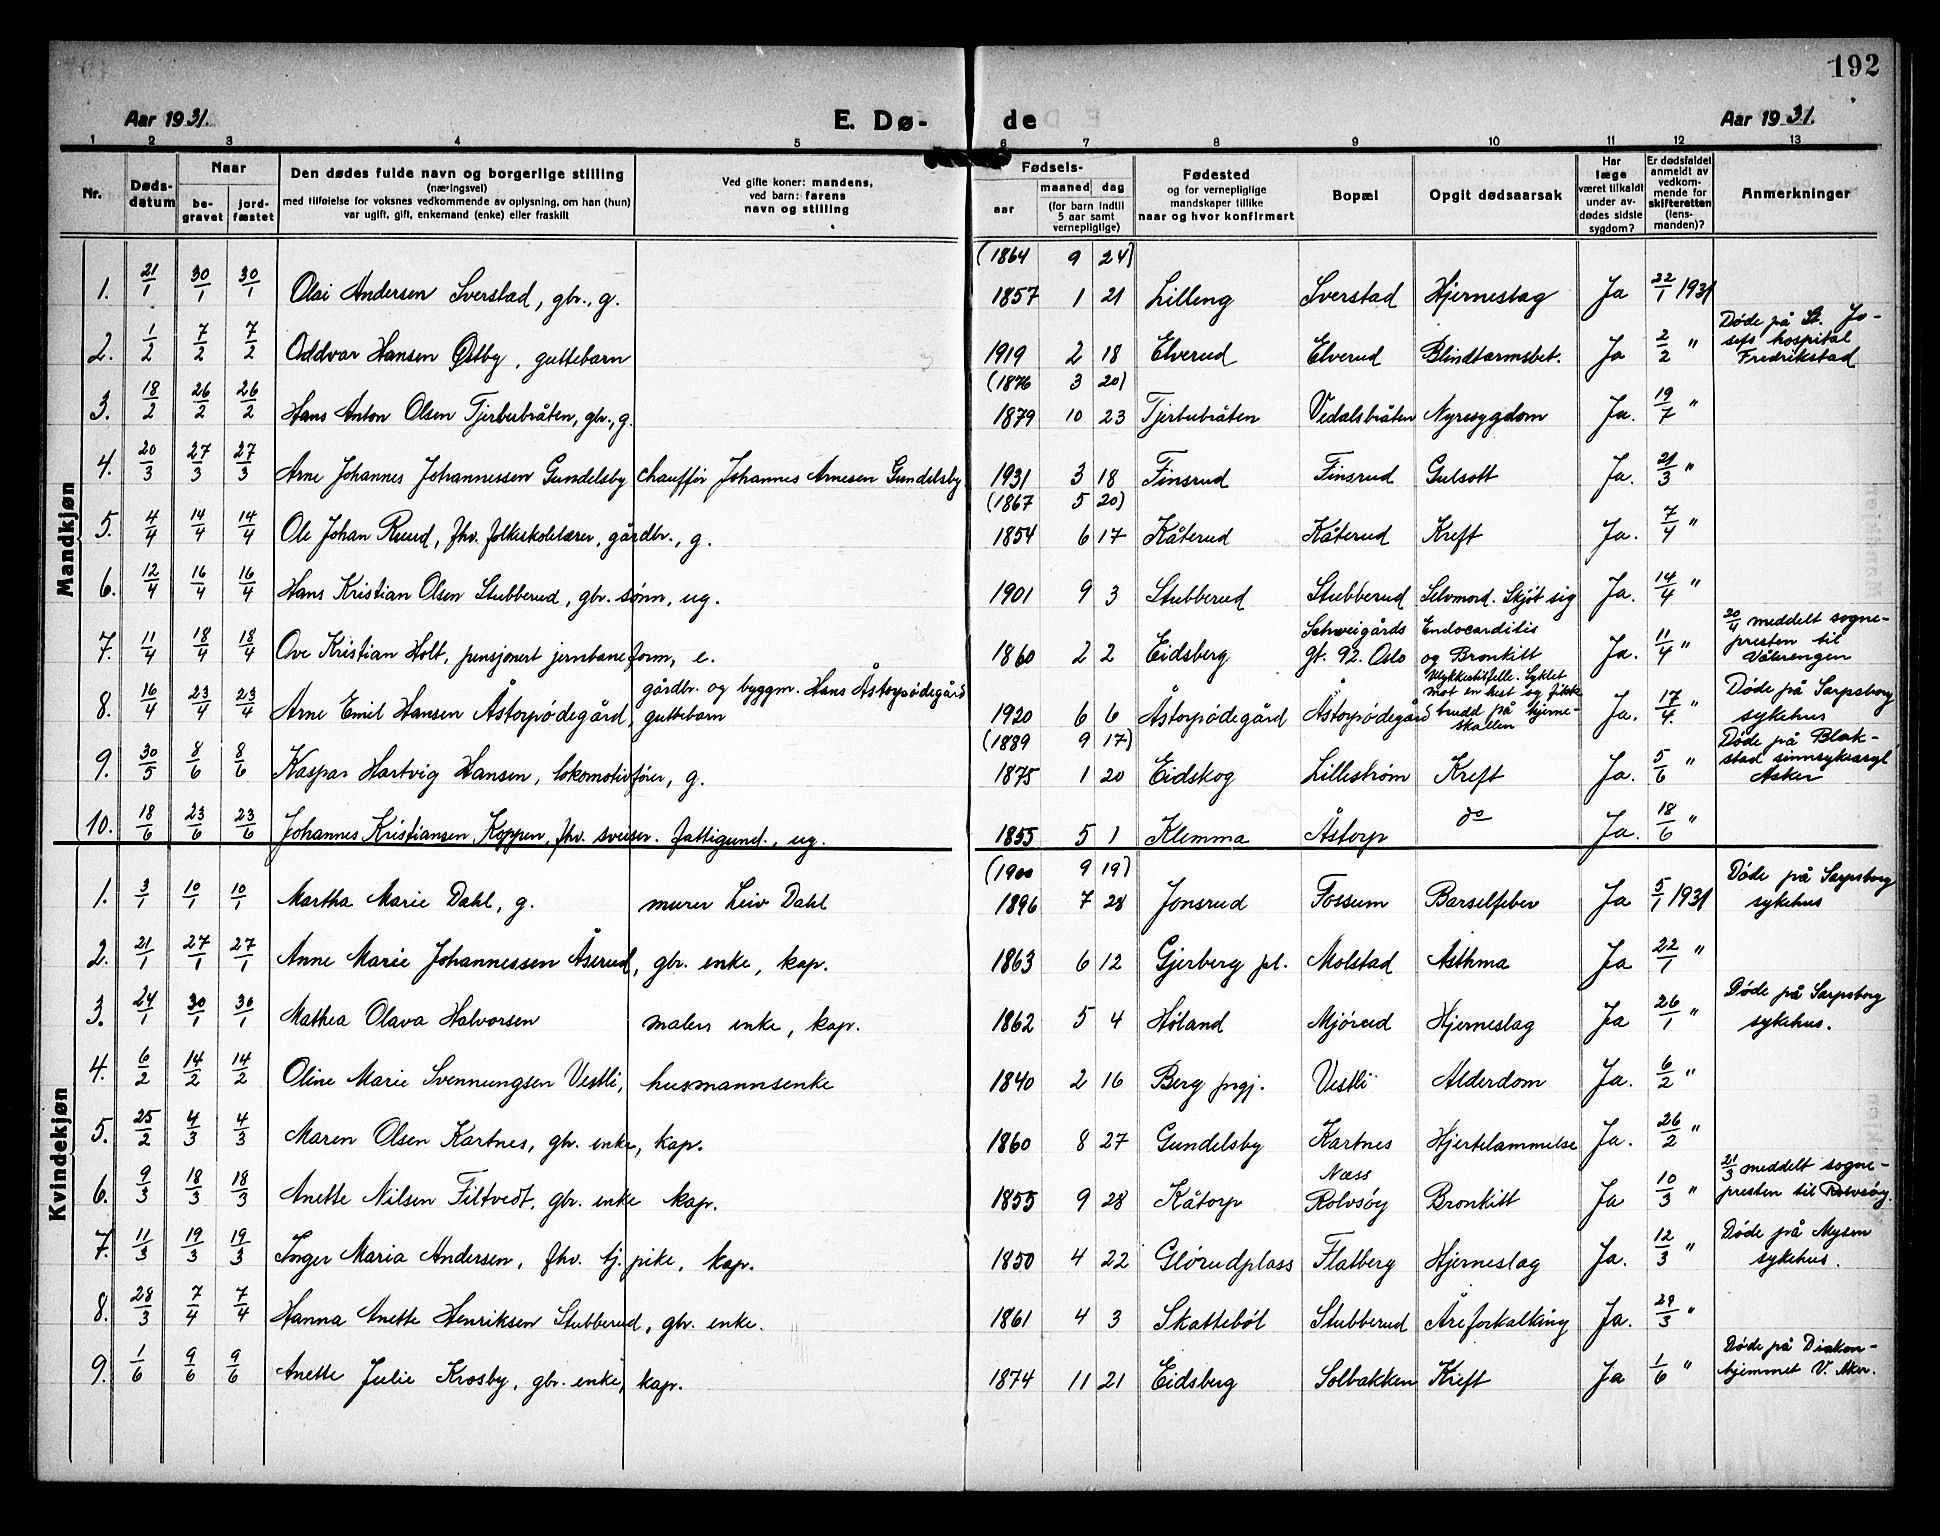 192
Aar 1931. E. Dø- de Aar 1931.
1 2 3 4 5 6 7 8 9 10 11 12 13
Nr. Døds-datum Naar be-gravet jord-fæstet
Den dødes fulde navn og borgerlige stilling
(næringsvei)
med tilføielse for voksnes vedkommende av oplysning, om han (hun)
var ugift, gift, enkemand (enke) eller fraskilt
Ved gifte koner: mandens,
ved barn: farens
navn og stilling
Fødsels-
aar maaned dag
(for barn indtil
5 aar samt
vernepligtige)
Fødested
og for vernepligtige
mandskaper tillike
naar og hvor konfirmert
Bopæl
Opgit dødsaarsak
Har
læge
været tilkaldt
under av-
dødes sidste
sygdom?
Er dødsfaldet
anmeldt av
vedkom-
mende for
skifteretten
(lens-
manden)?
Anmerkninger
Mandkjøn
(1864 9 24)
1. 21/1 30/1 30/1 Olai Andersen Sverstad, gbr., g. 1857 1 21 Lilleng Sverstad Hjerneslag Ja 22/1 1931
2. 1/2 7/2 7/2 Oddvar Hansen Østby, guttebarn 1919 2 18 Elverud Elverud Blindtarmsbet. Ja 2/2 " Døde på St. Jo-
sefs hospital
Fredrikstad
(1876 3 20)
3. 18/2 26/2 26/2 Hans Anton Olsen Tjerbubråten, gbr., g. 1879 10 23 Tjerbubråten Vedalsbråten Nyresygdom Ja. 19/7 "
4. 20/3 27/3 27/3 Arne Johannes Johannessen Gundelsby chauffør Johannes Arnesen Gundelsby 1931 3 18 Finsrud Finsrud Gulsott Ja. 21/3 "
(1867 5 20)
5. 4/4 14/4 14/4 Ole Johan Ruud, fhv. folkeskolelærer, gårdbr., g. 1854 6 17 Kåterud Kåterud Kreft Ja. 7/4 "
6. 12/4 16/4 16/4 Hans Kristian Olsen Stubberud, gbr. sønn, ug. 1901 9 3 Stubberud Stubberud Selvmord. Skjøt sig Ja. 14/4 "
7. 11/4 18/4 18/4 Ove Kristian Holt, pensjonert jernbaneform, e. 1860 2 2 Eidsberg Schweigårds
gt. 92. Oslo Endocarditis
og Bronkitt Ja. 11/4 " 20/4 meddelt sogne-
presten til
Vålerengen
8. 16/4 23/4 23/4 Arne Emil Hansen Åstorpødegård, guttebarn gårdbr. og byggm. Hans Åstorpødegård 1920 6 6 Åstorpødegård Åstorpødegård Ulykkestilfelle. Syklet
mot en hest og fikk
brudd på hjerne-
skallen Ja. 17/4. " Døde på Sarpsborg
sykehus
(1889 9 17)
9. 30/5 8/6 8/6 Kaspar Hartvig Hansen, lokomotivfører, g. 1875 1 20 Eidskog Lillestrøm Kreft Ja. 5/6 " Døde på Blak-
stad sinnsykeasyl
Asker
10. 18/6 23/6 23/6 Johannes Kristiansen Koppen, fhv. sveiser. fattigund., ug. 1855 5 1 Klemma Åstorp do Ja. 18/6 "
Kvindekjøn
(1900 9 19)
1. 3/1 10/1 10/1 Martha Marie Dahl, g. murer Leiv Dahl 1896 7 28 Jonsrud Fossum Barselfeber Ja 5/1 1931 Døde på Sarpsborg
sykehus
2. 21/1 27/1 27/1 Anne Marie Johannessen Åserud, gbr. enke, kap. 1863 6 12 Gjerberg pl. Molstad Asthma Ja 22/1 "
3. 24/1 30/1 30/1 Mathea Olava Halvorsen malers enke, kap. 1862 5 4 Høland Mjørud Hjerneslag Ja 26/1 " Døde på Sarpsborg
sykehus.
4. 6/2 14/2 14/2 Oline Marie Svennungsen Vestli, husmannsenke 1840 2 16 Berg prgj. Vestli Alderdom Ja. 6/2 "
5. 25/2 4/3 4/3 Maren Olsen Kartnes, gbr. enke, kap. 1860 8 27 Gundelsby Kartnes Hjertelammelse Ja. 26/2 "
6. 9/3 18/3 18/3 Anette Nilsen Filtvedt, gbr. enke kap. 1855 9 28 Kåtorp Næss
Rolvsøy Bronkitt Ja 10/3 " 21/3 meddelt sogne-
presten til Rolvsøy.
7. 11/3 19/3 19/3 Inger Maria Andersen, fhv. tj. pike, kap. 1850 4 22 Glørudplass Flatberg Hjerneslag Ja. 12/3 " Døde på Mysen
sykehus.
8. 28/3 7/4 7/4 Hanna Anette Henriksen Stubberud, gbr. enke. 1861 4 3 Skattebøl Stubberud Åreforkalking Ja. 29/3 "
9. 1/6 9/6 9/6 Anette Julie Krosby, gbr. enke, kap. 1874 11 21 Eidsberg Solbakken Kreft Ja 1/6 " Døde på Diakon-
hjemmet V. Aker.